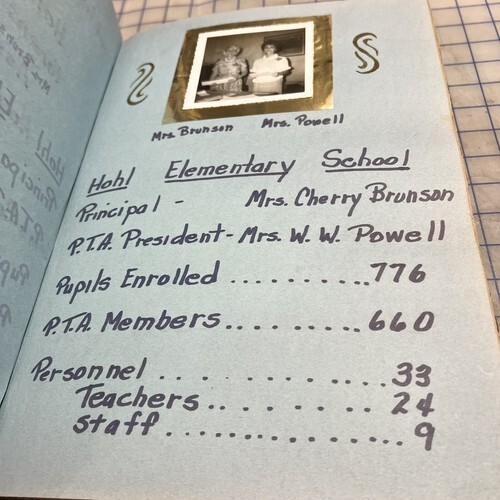 Mrs. Brunson Mrs. Powell
Hohl Elementary School
Principal - Mrs. Cherry Brunson
P.T.A. President - Mrs. W. W. Powell
Pupils Enrolled ..........776
P.T.A. Members..........660
Personnel .............33
Teachers............24
Staff ...............9